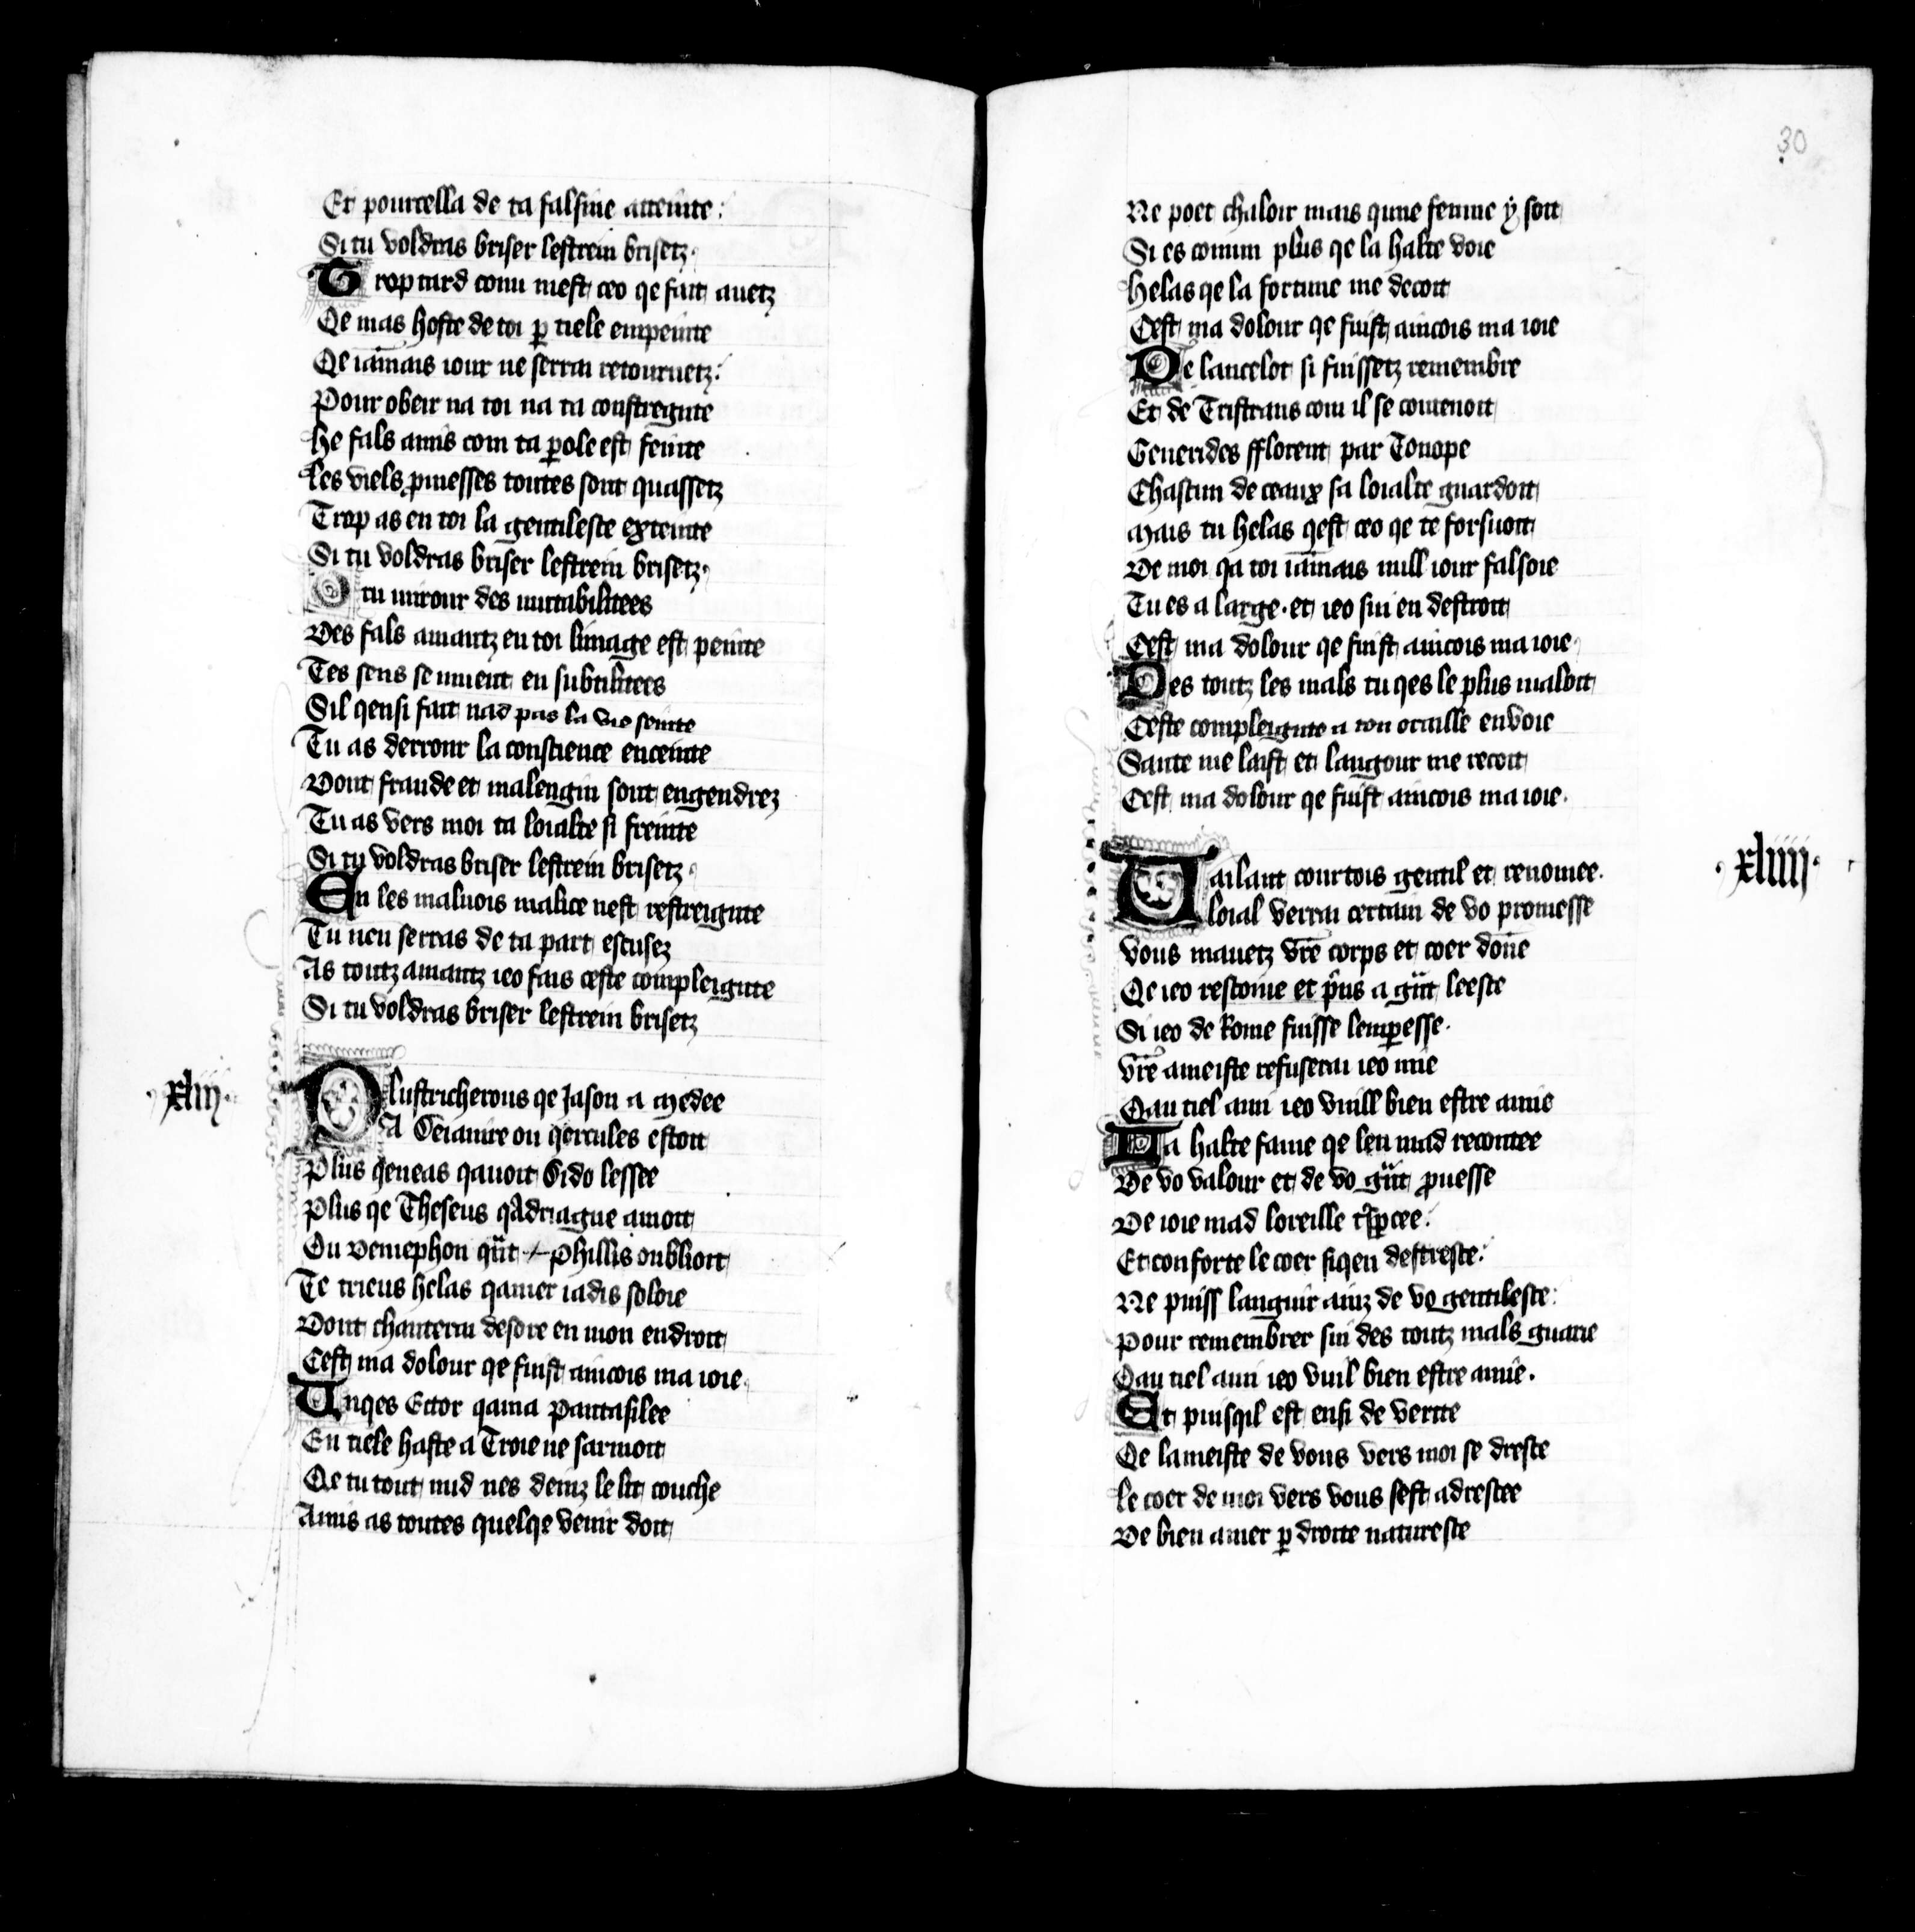 Et pourcella de ta falsine atteinte:
Si tu voldras briser lestrein brisetz.
Trop tard conu mest ceo qe fait avetz
Qe mas hoste de toi ꝑ tiele empeinte
Qe iammais iour ne serrai retournetz:
Pour obeir na toi na ta constregnte
He fals amis com ta ꝑole est feinte
Les viels ꝓmesses toutes sont quassetz
Trop as en toi la gentilesce exteinte
Si tu voldras briser lestrein brisetz.
O tu mirour des mutabilitees
Des fals amantz en toi limage est peinte
Tes sens se muent en subtilitees
Sil qensi fait nad pas la vie seinte
Tu as derrour la conscience enceinte
Dont fraude et malengin sont engendrez
Tu as vers moi ta loialte si freinte
Si tu voldras briser lestrein brisetz.
En les malvois malice nest restreignte
Tu neu serras de ta part escusez
As toutz amantz ieo fais ceste compleignte
Si tu voldras briser lestrein brisetz
·xliii·
Plustricherous qe Jason a Medee
A Deianire ou qercules estoit
Plus qeneas qavoit Dido lessee
Plus qe Theseus qAdriagne amoit
Ou Demephon qut Phillis oublioit
Te trieus helas qamer iadis soloie
Dont chanterai desore en mon endroit
Cest ma dolour qe fuist aincois ma ioie.
Unqes Ector qama Pantasilee
En tiele haste a Troie ne sarmoit
Qe tu tout nud nes deniz le lit couche
Amis as toutes quelqe venir doit
30
Ne poet chaloir mais qune femme y soit
Si es comun plus qe la halte voie
Helas qe la fortune me decoit
Cest ma dolour qe fuist aincois ma ioie
De lancelot si fuissetz remembre
Et de Tristrans com il se contenoit
Generides fflorent par Tonope
Chascun de ceaux sa loialte guardoit
Mais tu helas qest ceo qe te forsvoit
De moi qa toi iammais null iour falsoie
Tu es a large · et ieo sui en destroit
Cest ma dolour qe fuist aincois ma ioie·
Des toutz les mals tu qes le plus maloit
Ceste compleignte a ton oraille envoie
Sante me laist et langour me recoit
Cest ma dolour qe fuist aincois ma ioie.
·xliiii·
Vailant courtois gentil et renomee.
Loial verrai certain de vo promesse
Vous mavetz vr̄e corps et coer done
Qe ieo rescoive et pͥns a gͣnt leesce
Si ieo de Rome fuisse lemꝑesse·
Vr̄e ameiste refuserai ieo mie
Qau tiel ami ieo vuill bien estre amie
La halte fame qe len mad recontee
De vo valour et de vo gͣnt ꝓuesse
De ioie mad loreille tͣnsꝑcee:
Et conforte le coer siqen destresce:
Ne puiss languir ainz de vo gentilesce:
Pour remembrer sui des toutz mals guarie
Qau tiel ami ieo vuil bien estre amie.
Et puisqil est ensi de vertee
Qe lameiste de vous vers moi se dresce
Le coer de moi vers vous sest adrescee
De bien amer ꝑ droite naturesce